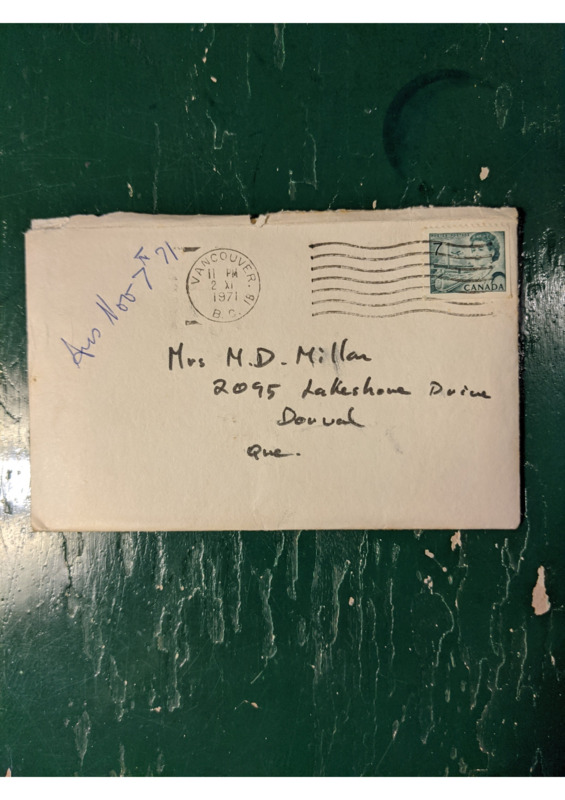 Ans Nov 7th 71
VANCOUVER.
11 PM
2 XI
1971
B.C. 15
7
CANADA
Mrs M.D. Millar
2095 Lakeshore Drive
Dorval
Que.